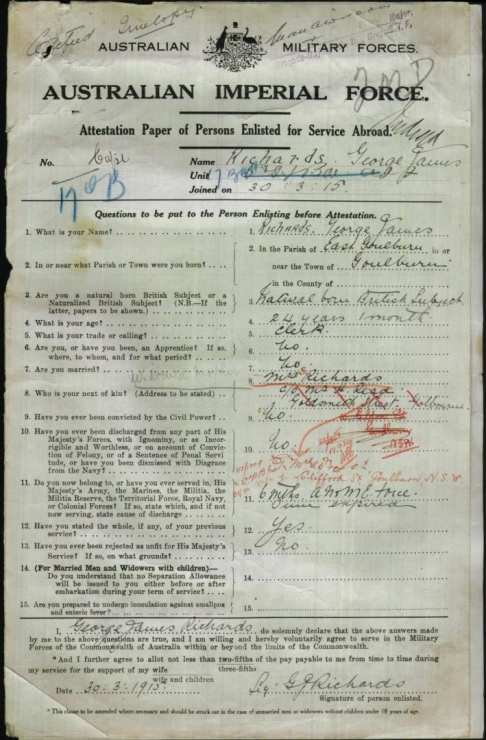 AUSTRALIAN MILITARY FORCES.
AUSTRALIAN IMPERIAL FORCE.
Attestation Paper of Persons Enlisted for Service Abroad.
No.
Name Richards. George James
Unit
Joined on 30.3.15
17th B
Questions to be put to the Person Enlisting before Attestation.
1. What is your Name?
1. Richards. George James
2. In or near what Parish or Town were you born?
2. In the Parish of East Goulburn, in or
near the Town of Goulburn
in the County of
3. Are you a natural born British Subject or a
Naturalized British Subject? (N.B.—If the
latter, papers to be shown.)
3. Natural born British Subject
4. What is your age?
4. 24 years 1 month
5. What is your trade or calling?
5. Clerk.
6. Are you, or have you been, an Apprentice? If so,
where, to whom, and for what period?
6. No.
7. Are you married?
7. No
8. Who is your next of kin? (Address to be stated)
8. Mrs Richards
Goldsmith Street Goulburn
9. Have you ever been convicted by the Civil Power?
9. No.
10. Have you ever been discharged from any part of His
Majesty's Forces, with Ignominy, or as Incor-
rigible and Worthless, or on account of Convict-
ion of Felony, or of a Sentence of Penal Servi-
tude, or have you been dismissed with Disgrace
from the Navy?
10. No.
Clifford St Goulburn N.S.W
11. Do you now belong to, or have you ever served in, His
Majesty's Army, the Marines, the Militia, the
Militia Reserve, the Territorial Force, Royal Navy,
or Colonial Forces? If so, state which, and if not
now serving, state cause of discharge
11. 6 mths. A.N.&M. Force.
Time expired
12. Have you stated the whole, if any, of your previous
service?
12. Yes
13. Have you ever been rejected as unfit for His Majesty's
Service? If so, on what grounds?
13. No.
14. (For Married Men and Widowers with children)—
Do you understand that no Separation Allowance
will be issued to you either before or after
embarkation during your term of service?
14.
15. Are you prepared to undergo inoculation against smallpox
and enteric fever?
15.
I, George James Richards, do solemnly declare that the above answers made
by me to the above questions are true, and I am willing and hereby voluntarily agree to serve in the Military
Forces of the Commonwealth of Australia within or beyond the limits of the Commonwealth.
*And I further agree to allot not less than two-fifths of the pay payable to me from time to time during
three-fifths
my service for the support of my wife
wife and children
Date 30.3.1915.
Sig G J Richards
Signature of person enlisted.
* This clause to be amended where necessary and should be struck out in the case of unmarried men or widowers without children under 18 years of age.